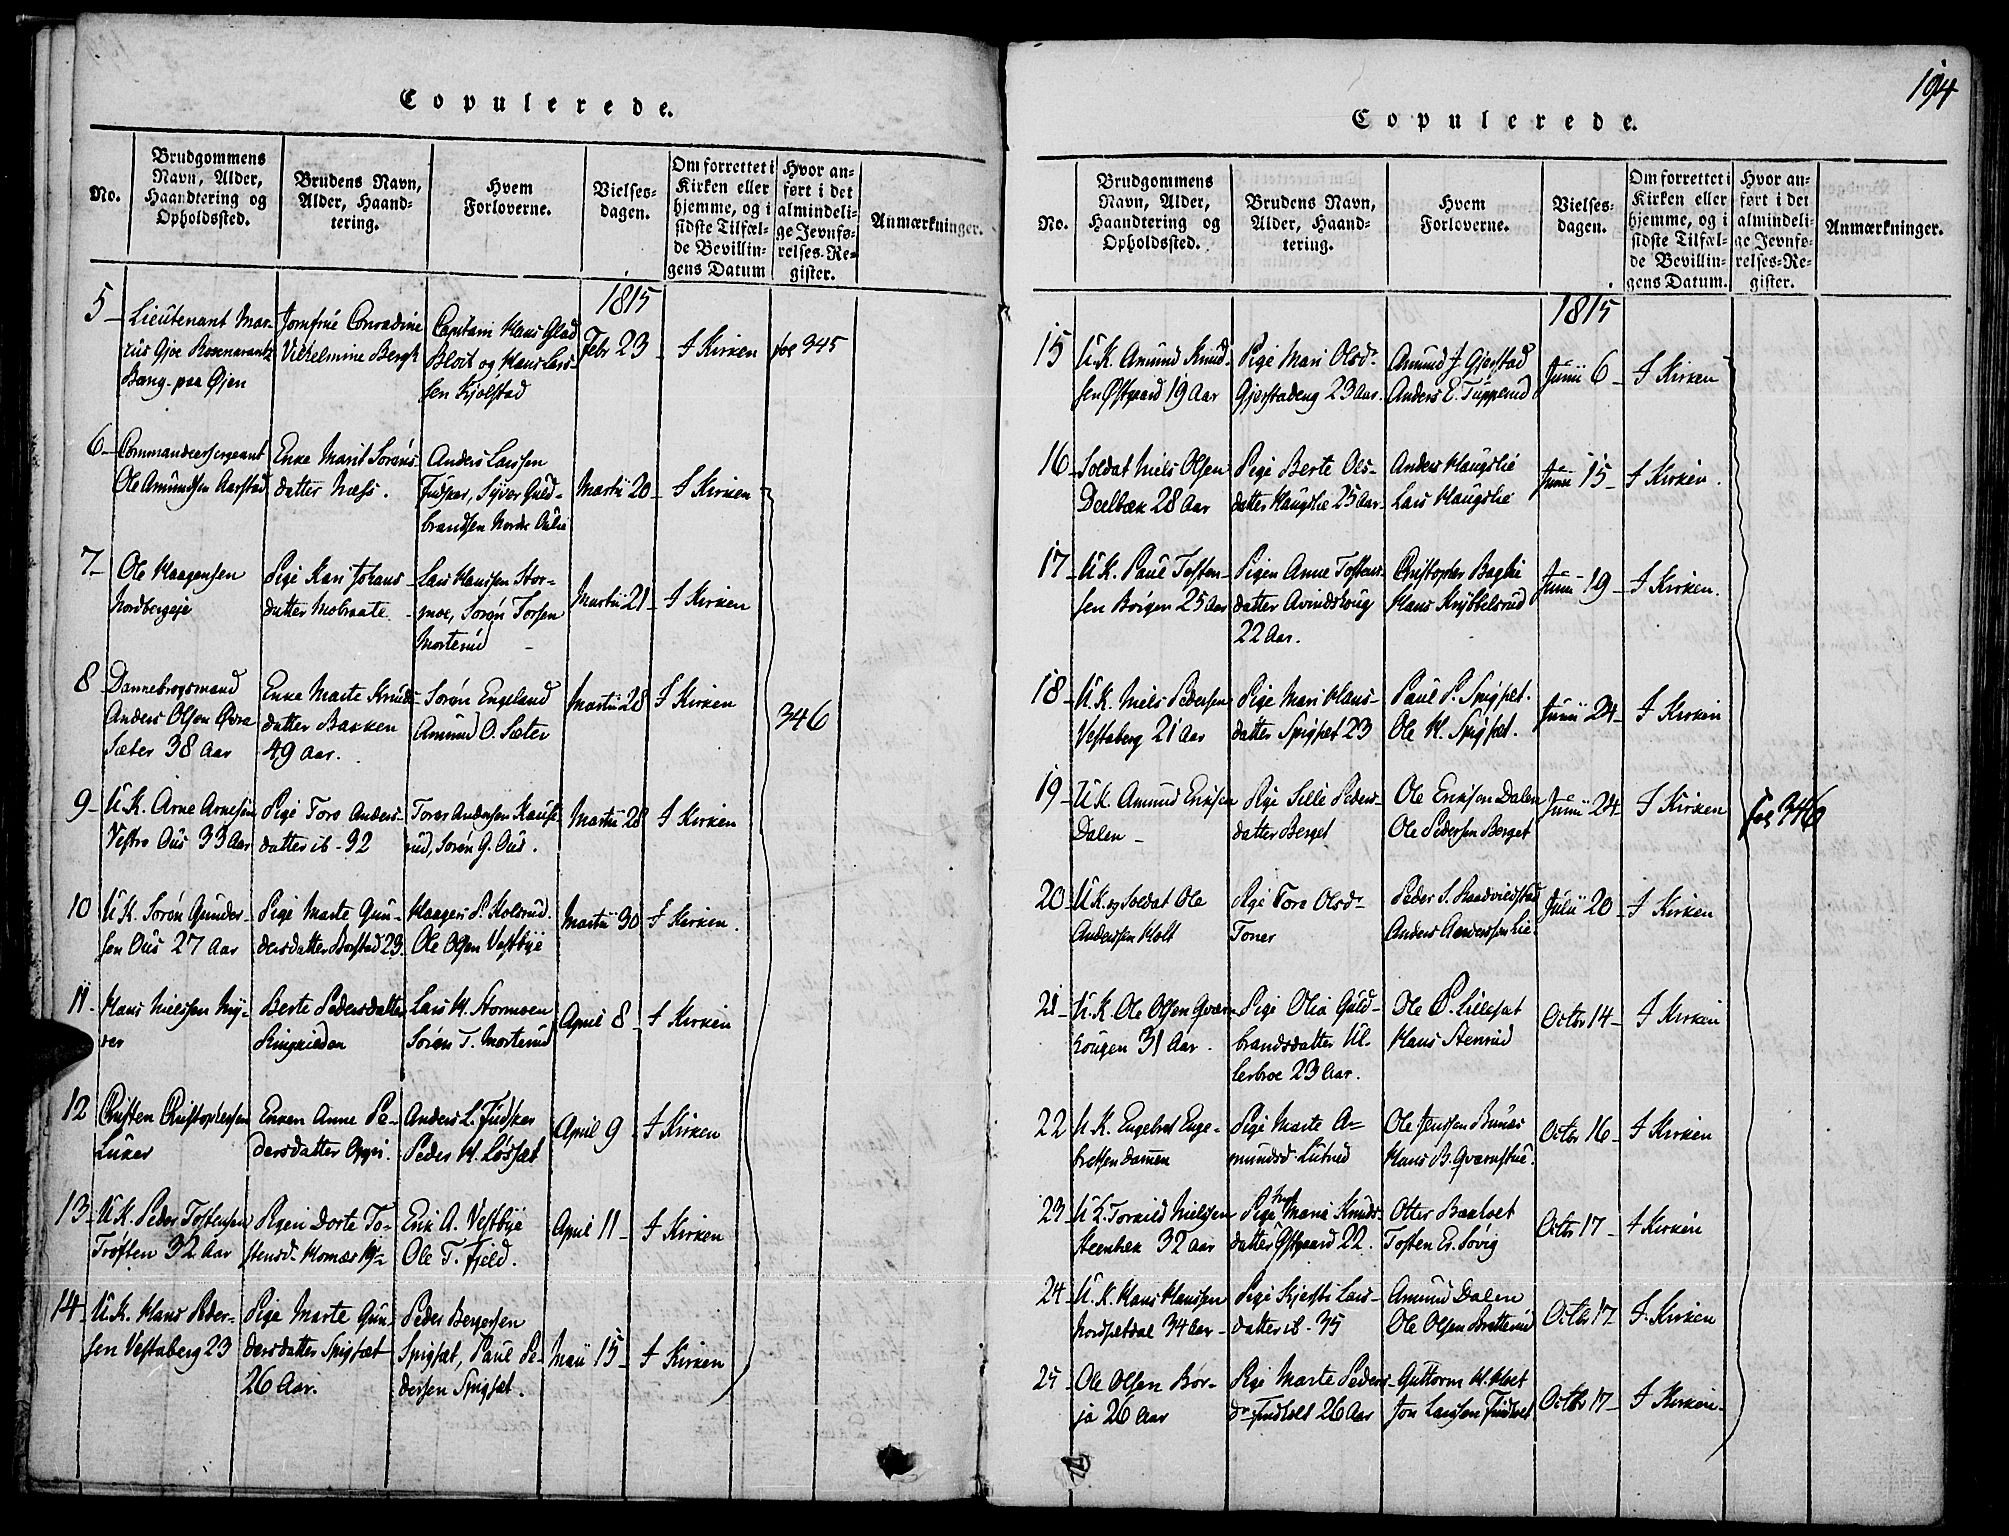 Copulerede.
No.
Brudgommens Navn, Alder, Haandtering og Opholdssted.
Brudens Navn, Alder, Haandtering.
Hvem Forloverne.
Vielsesdagen.
Om forrettet i Kirken eller hjemme, og i sidste Tilfælde Bevillingens Datum
Hvor anført i det almindelige Jevnførelses-Register.
Anmærkninger.
1815
5 Lieutenant Marcus Gjøe Rosencrantz Bang paa Øjen
Jomfrue Conradine Vilhelmine Bergh
Capitain Hans Glad Bloit og Hans Larssen Kjølstad
Febr 23
I Kirken
fol 345
6 Commandeersergeant Ole Amundsen Aarstad
Enke Marit Sørensdatter Næss.
Anders Larssen Fudskar, Syver Guldbrandsen Nordr Aulie
Martii 20
I Kirken
7 Ole Haagensen Nordbergeje
Pige Kari Johansdatter
Lars Hanssen Stormoe, Sørøn Torsen Morterud
Martii 21
I Kirken
8 Dannebrogsmand Anders Olsen Øvre Sæter 38 Aar
Enke Marte Knudsdatter Bakken 49 Aar.
Sørøn Engeland Amund O. Sæter
Martii 28
I Kirken
346
9 U.K. Arne Arnesen Vestre Aus 33 Aar
Pige Toro Andersdatter ib. 32
Torer Andersen rud, Sørøn G. Aus.
Martii 28
I Kirken
10 U.K. Sørøn Gundersen Aus 27 Aar
Pige Marte Gundersdatter Borstad 23.
Haagen P. Kolsrud. Ole Olsen Vestbye
Martii 30
I Kirken.
11 Hans Nielssen Myrer
Berte Pedersdatter
Lars H. Stormoen Sørøn T. Morterud
April 8
I Kirken
12 Christen Christophersen Luker
Enken Anne Pedersdatter Opgri.
Anders L. Fudskar Peder H. Løsset
April 9
I Kirken
13 U.K. Peder Tostensen Trøften 32 Aar
Pigen Dorte Tostensd. Hornæs
Erik A. Vestbye Ole T. Fjeld.
April 11
I Kirken
14 U.K. Hans Pedersen Vestaberg 23
Pige Marte Gundersdatter Spigset 26 Aar.
Peder Bergersen Spigset, Paul Pedersen Spigset.
Maii 15
I Kirken
194
Copulerede.
No.
Brudgommens Navn, Alder, Haandtering og Opholdssted.
Brudens Navn, Alder, Haandtering.
Hvem Forloverne.
Vielsesdagen.
Om forrettet i Kirken eller hjemme, og i sidste Tilfælde Bevillingens Datum.
Hvor anført i det almindelige Jevnførelses-Register.
Anmærkninger.
1815
15 U.K. Amund Knudsen Østgaard 19 Aar
Pige Mari Olsdr Gjerstadeng 23 Aar.
Amund J Gjerstad Anders E. Tupperud
Junii 6
I Kirken
16 Soldat Niels Olsen Deelbæk 28 Aar
Pige Berte Olsdatter Haugslie 25 Aar
Anders Haugslie Lars Haugslie
Junii 15
I Kirken.
17 U.K. Paul Tostensen Børgen 25 Aar
Pigen Anne Tostensdatter Avindshoug 22 Aar.
Christopher Baglie Hans Knybbelsrud
Junii 19
I Kirken.
18 U.K. Niels Pedersen Vestaberg 21 Aar
Pige Mari Hansdatter Spigset 23
Paul P. Spigset. Ole H. Spigset.
Junii 24
I Kirken
19 U.K. Amund Eriksen Dalen
Pige Sille Pedersdatter Berget
Ole Eriksen Dalen Ole Pedersen Berget
Junii 24
I Kirken
fol 346
20 U.K. og Soldat Ole Anderssen Holt
Pige Toro Olsdr Toner
Peder S. Raadvildstad Anders Anderssen Lie
Julii 20
I Kirken
21 U.K. Ole Olsen Qværnhougen 31 Aar.
Pige Olia Guldbrandsdatter Ullerbroe 23 Aar.
Ole P. Lilleset Hans Stenrud
Octbr 14
I Kirken
22 U.K. Engebret Engebretsen Damen
Pige Marte Amundsd. Lutned
Ole Jenssen Bunæs Hans B. Qværnstue.
Octbr 16
I Kirken
23 U.K. Torkild Nielssen Steenbek 32 Aar
Pige Maria Knudsdatter Østgaard 22.
Otter Baalvet Tosten Er. Søvig
Octbr 17
I Kirken
24 U.K. Hans Hanssen Nordsetdal 34 Aar
Pige Kjersti Larsdatter ib. 35
Amund Dalen Ole Olsen Bratterud
Octbr 17
I Kirken
25 Ole Olsen Børja 26 Aar
Pige Marte Pedersdr Fudholt 26 Aar
Guttorm H. Hvet Jon Larssen Fudholt
Octbr 17
I Kirken